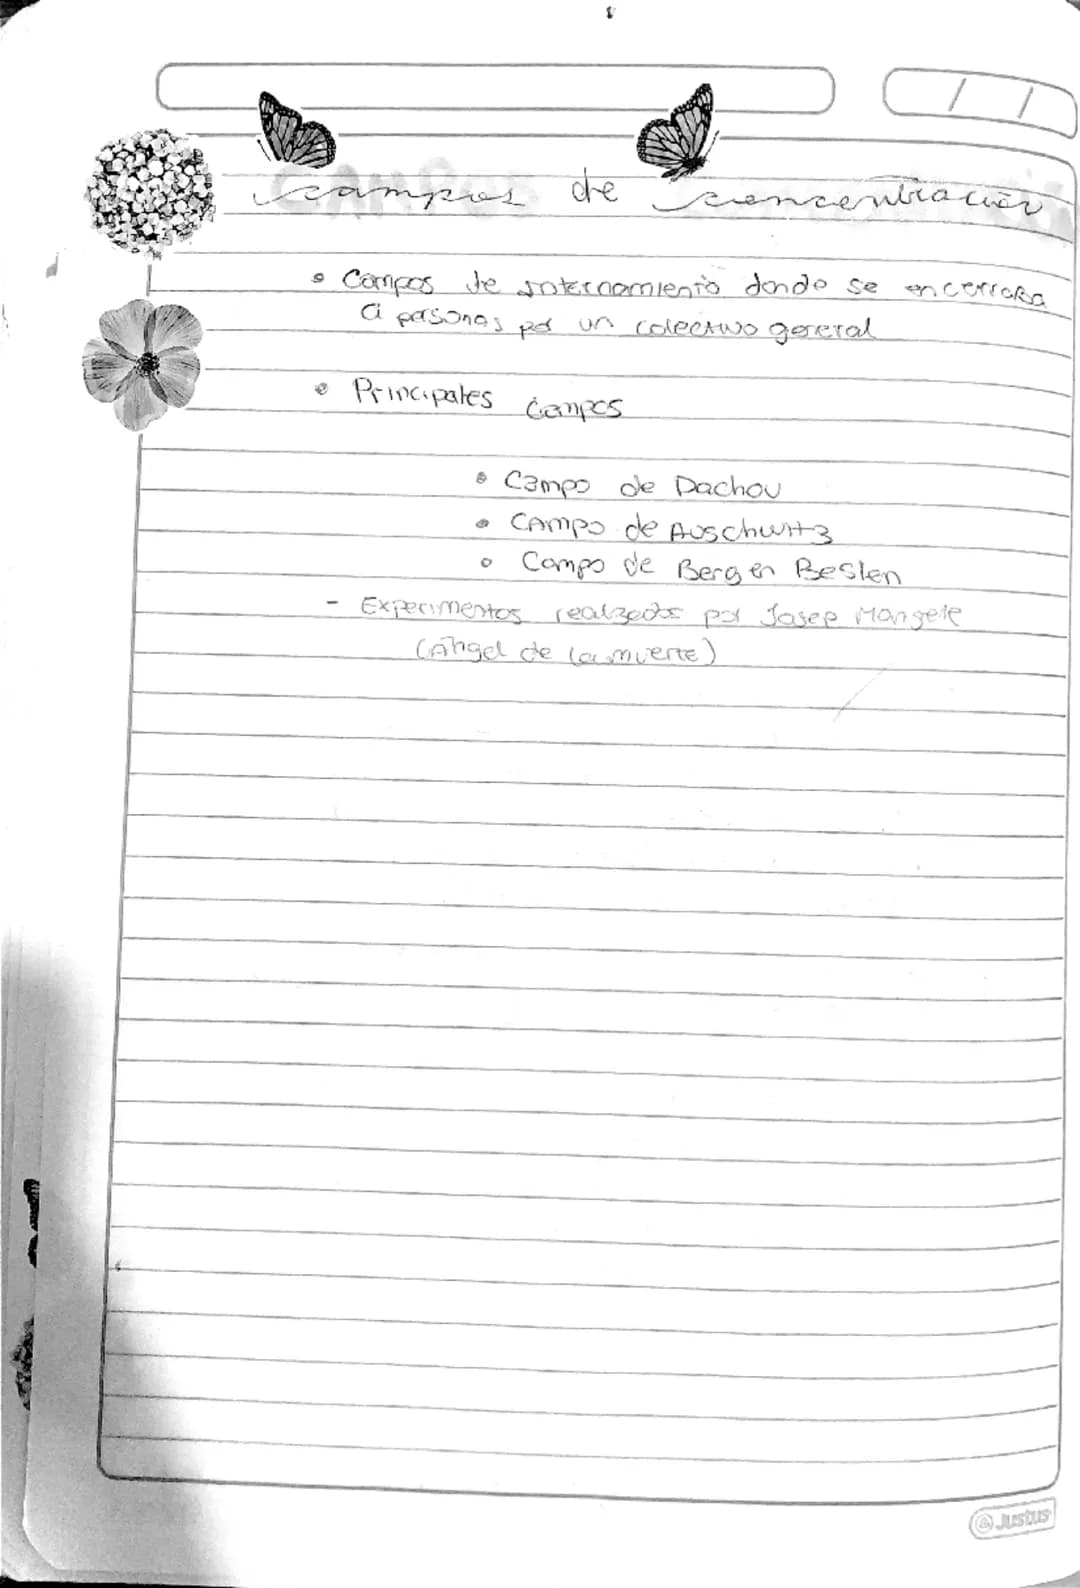 campos de concentración
• Campos de internamiento donde se encerraba
a personas por un colectivo general
• Principales campos
• Campo de Dachou
• Campo de Auschwitz
• Campo de Bergen Beslen
- Experimentos realzados por Josep Mangele
(Angel de la muerte)
Justus